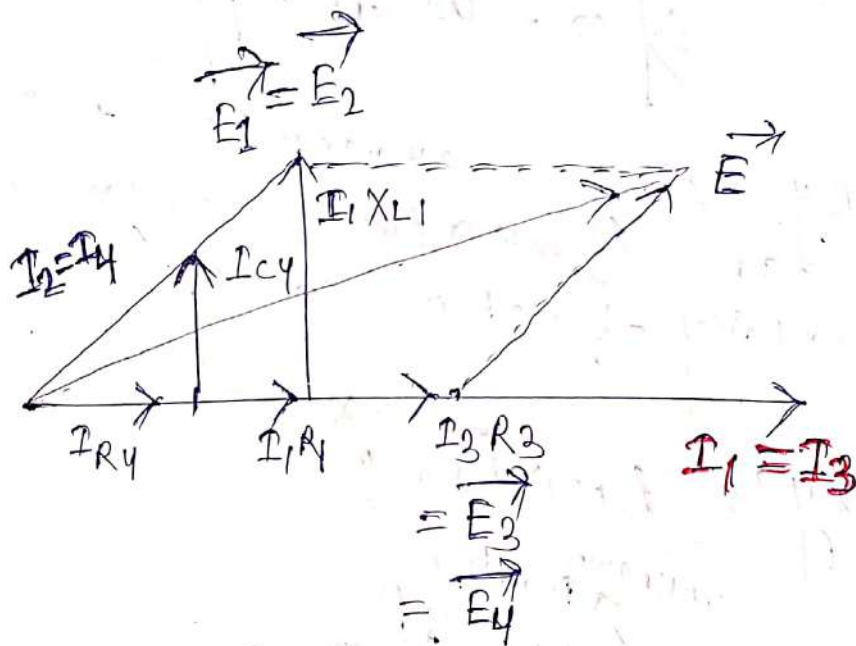 E1 = E2
E
I1 XL1
I2=I4
IC4
IR4
I1R1
I3 R3
I1 = I3
= E3
= E4